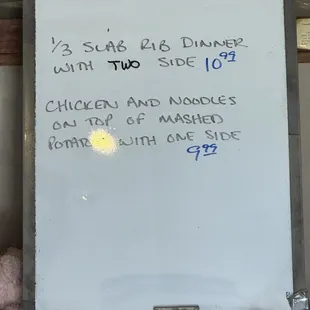 1/3 SLAB RIB DINNER
WITH TWO SIDE 10.99
CHICKEN AND NOODLES
ON TOP OF MASHED
WITH ONE SIDE
9.99